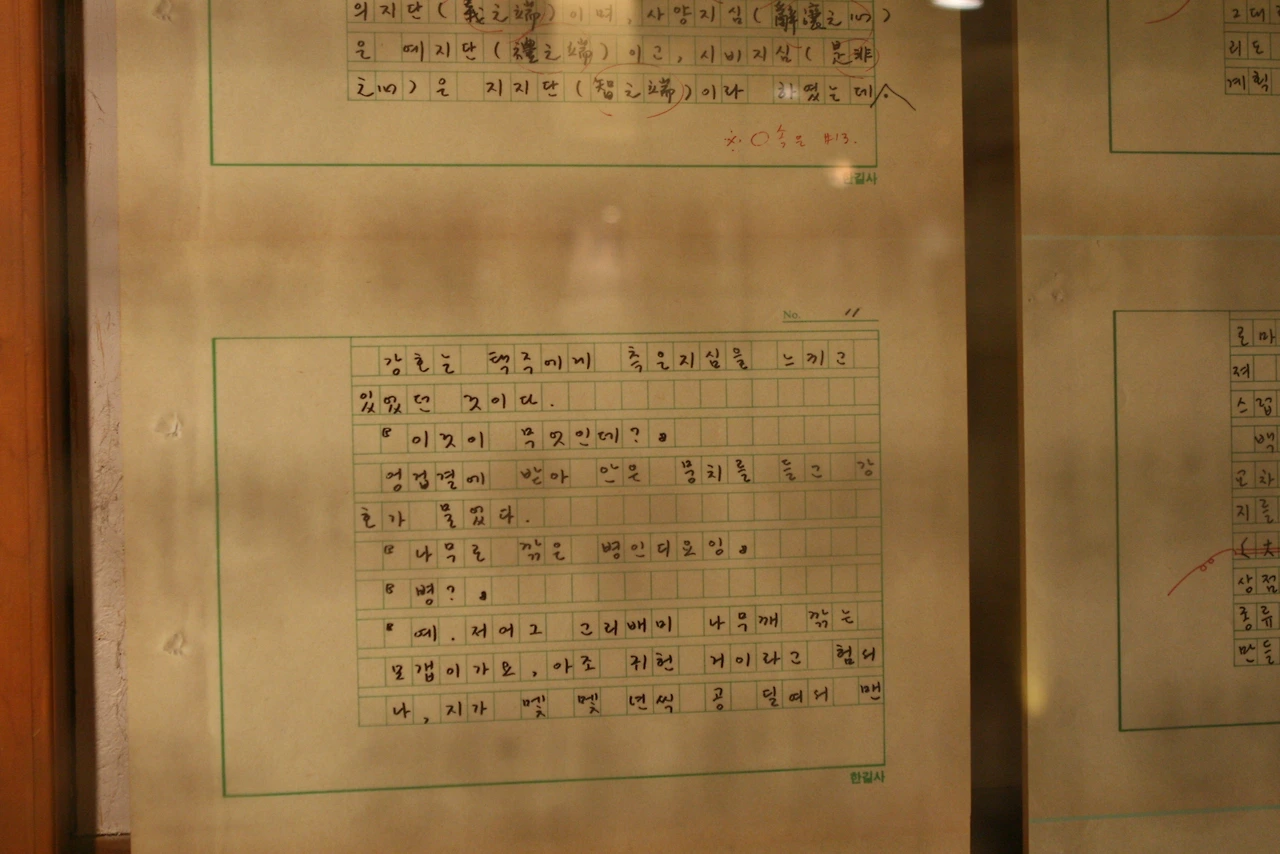 의지단(義之端)이며, 사양지심(辭讓之心)
은 예지단(禮之端)이고, 시비지심(是非
之心)은 지지단(智之端)이라 하였는데.
※ ○속은 #13.
한길사
No. 11
강호는 택주에게 측은지심을 느끼고
있었던 것이다.
『이것이 무엇인데?』
엉겁결에 받아 안은 뭉치를 들고 강
호가 물었다.
『나무로 깎은 병인디요잉』
『병?』
『예. 저어그 그리배미 나무깨 깎는
모갭이가요, 아조 귀헌 거이라고 험서
나, 지가 멫 멫 년씩 공 딜여서 맨
한길사
그대
리도
계획
로마
져
스럽
백
고차
지를
상점
종류
만들